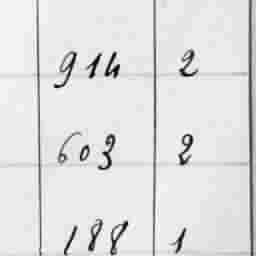 914 2
603 2
188 1